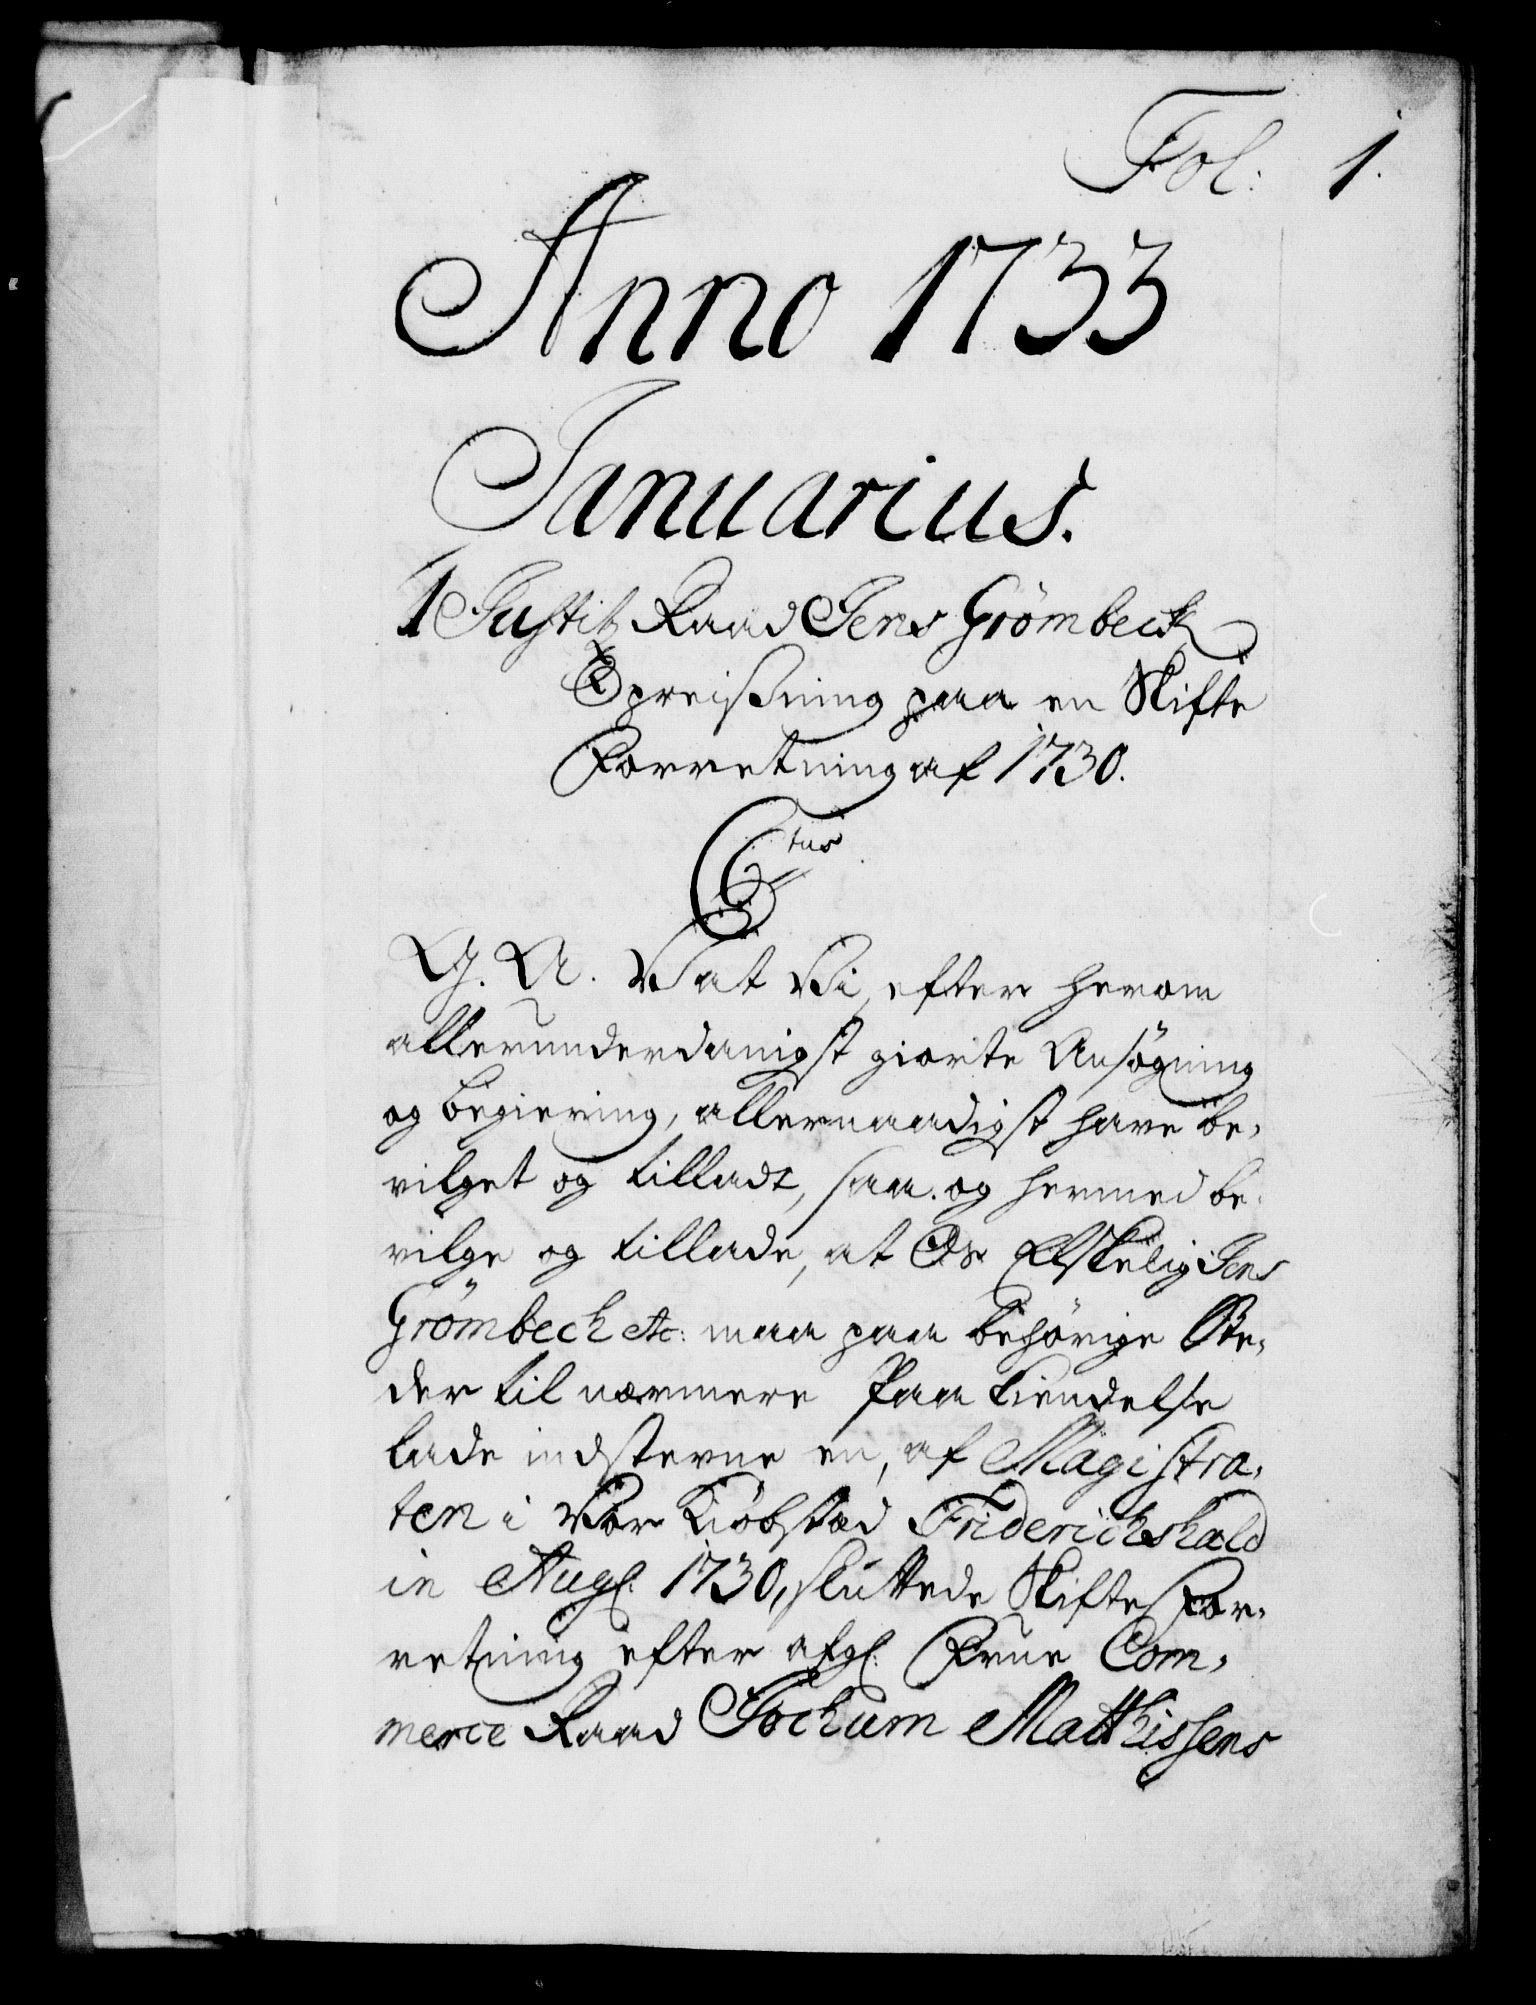 Fol: 1.
Anno 1733
Januarius.
1 Justitz Raad Jens Grömbeck
Opreisning paa en Skifte
Forretning af 1730.
C 6tus
G. A. V. at Vi, efter herom
allerunderdanigst giorte Ansøgning
og begiering, allernaadigst have be,
vilget og tilladt, saa og hermed be,
vilge og tillade, at Os Elskelig Jens
Grömbech etc: maa paa behörige Ste,
der til nærmere Paa kiendelse
lade indstevne en, af Magistra,
ten i Vor Kiöbstæd Friderichshald
in Aug: 1730, sluttede Skifte For,
retning efter afg: Frue Com,
merce Raad Jochum Matthissens